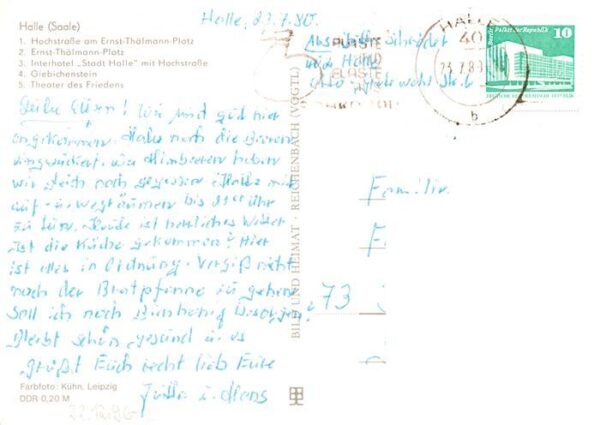 Halle, 23.7.80.
Halle (Saale)
1. Hochstraße am Ernst-Thälmann-Platz
2. Ernst-Thälmann-Platz
3. Interhotel „Stadt Halle" mit Hochstraße
4. Giebichenstein
5. Theater des Friedens
PLASTE
ELASTE
HALLE
40
b
Palast der Republik
10
Liebe Eltern! Wir sind gut hier
angekommen. Habe noch die Birnen
eingezuckert, die Himbeeren haben
wir gleich noch gegessen. Hatte mit
auf- u. wegräumen bis
zu tun. Heute ist herrliches Wetter
Ist die Küche gekommen? Hier
ist alles in Ordnung. Vergiß nicht
nach der Bratpfanne zu gehen
Soll ich noch besorgen?
Bleibt schön gesund u. es
grüßt Euch recht lieb Eure
u. Hans
Familie
F
73
BILD UND HEIMAT · REICHENBACH (VOGTL)
Farbfoto: Kühn, Leipzig
DDR 0,20 M